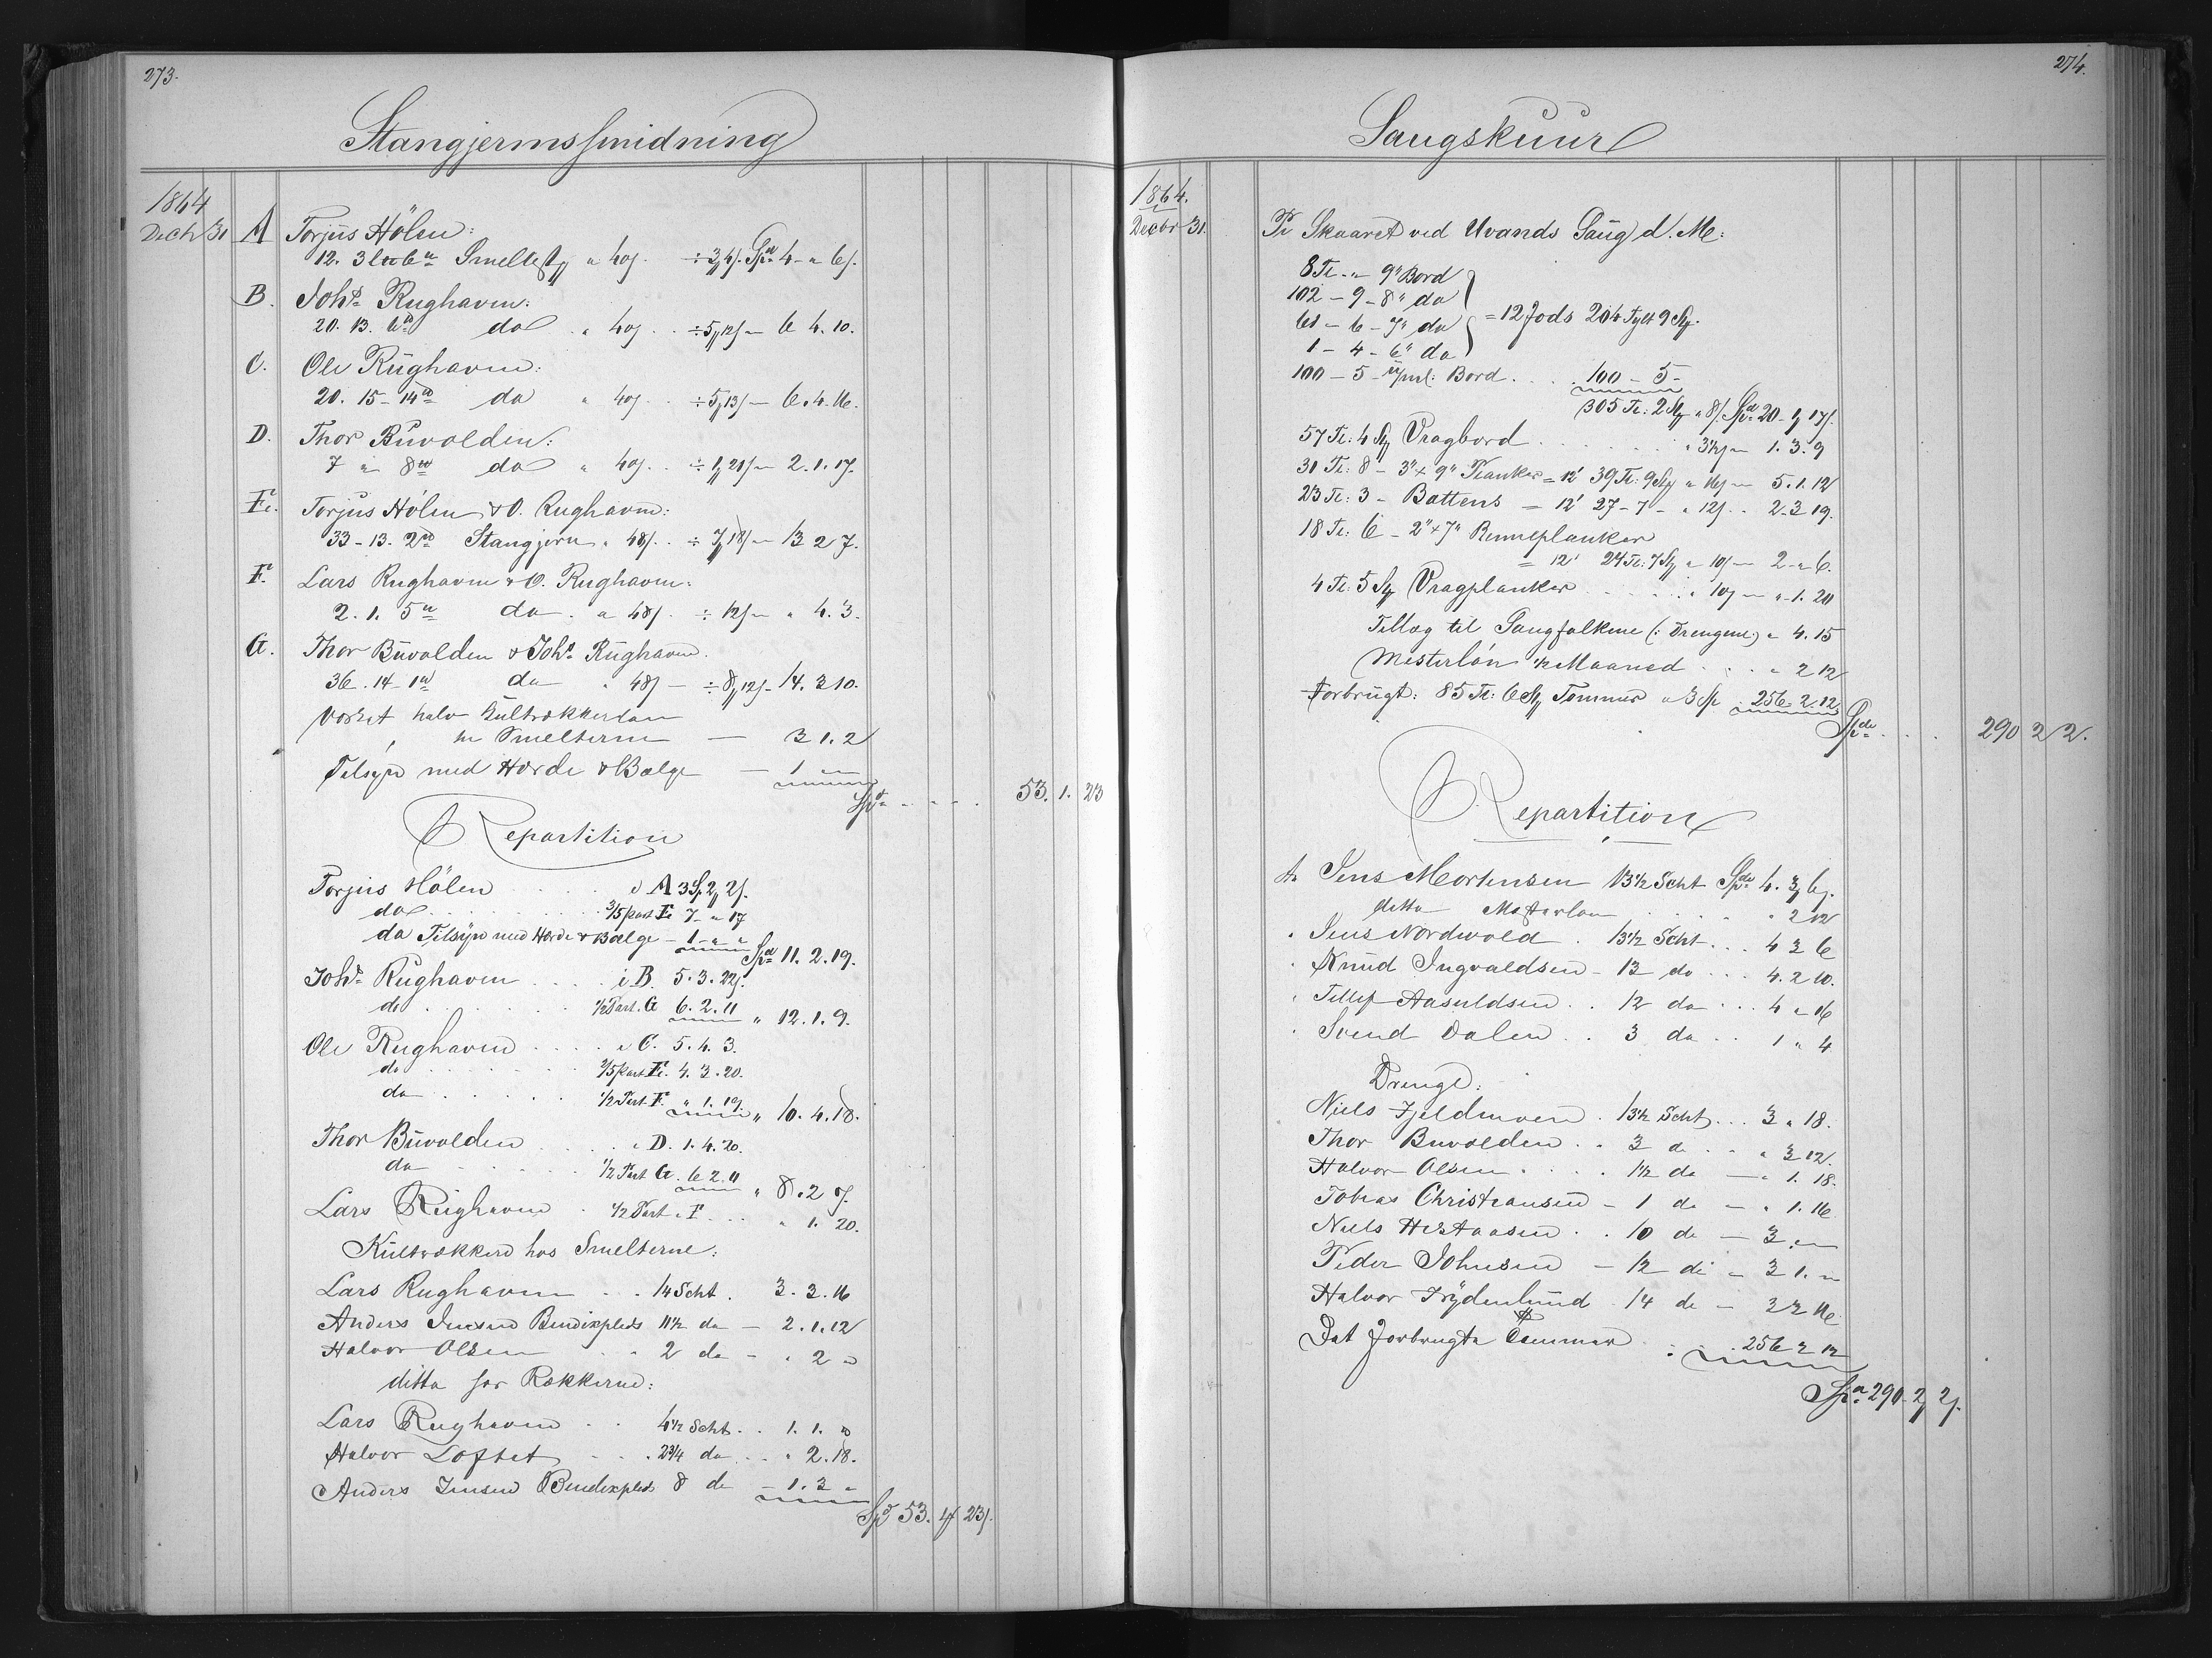 273.
Stangjernssmidning
1864
Decbr 31 A Torjus Hölen:
12. 3 6 Smeltestg a 40s. ÷ 3,4s. Spd 4 - " 6s.
B. Johs Rughaven:
20. 13. 6 do " 40s. ÷ 5,12s — 6 4. 10.
C. Ole Rughaven:
20. 15 - 14 do " 40s. ÷ 5,13s — 6. 4. 16.
D. Thor Buvolden:
7 " 8 do " 40s. ÷ 1,21s — 2. 1. 17.
E. Torjus Hölen & O. Rughaven:
33 - 13. 2 Stangjern " 48s. ÷ 7,18s — 13 2 7.
F. Lars Rughaven & O. Rughaven:
2. 1. 5 do. a 48s. ÷ 12s — " 4. 3.
G. Thor Buvolden & Johs Rughaven.
36. 14 - 1 do " 48s — ÷ 8,12s - 14. 3 10.
halv Kultrækkerlön
Smelterne — 3 1. 2
Tilsyn med Hærde & Bælge — 1 " "
Spd . . . . 53. 1. 23
Repartition
Torjus Hölen . . . . i A 3 Sp 2, 2s.
do . . . . 3/5 part E 7 " 17
do Tilsyn med Hærde & Bælge — 1 " " Spd 11. 2. 19.
Johs Rughaven . . . . i B. 5. 3. 22s.
do . . . . 1/2 Part. G 6. 2. 11 " 12. 1. 9.
Ole Rughaven . . . . i C. 5. 4. 3.
do . . . . 2/5 part E. 4. 3. 20.
do . . . . 1/2 Part F. " 1. 19. " 10. 4. 18.
Thor Buvolden . . . . i D. 1. 4. 20.
do . . . . 1/2 Part G. 6 2. 11 " 8. 2 7.
Lars Rughaven . 1/2 Part. F . . . " 1. 20.
Kultrækkere hos Smelterne:
Lars Rughaven . . 14 Scht. 3. 3. 16
Anders Jensen Bendixplds 11 1/2 do — 2. 1. 12
Halvor Olsen . . 2 do — " 2 "
ditto for Rækkerne:
Lars Rughaven . . 4 1/2 Scht. . 1. 1. "
Halvor Loftet . . 2 3/4 do . . " 2. 18.
Anders Jensen Bendixplds 8 do — 1. 3 "
Spd 53. 1 23s.
274.
Saugskuur
1864.
Decbr 31. Pr Skaaret ved Uvands Saug d. M:
8 Tl. " 9" Bord
102 — 9 - 8" do
61 — 6 - 7" do = 12 Fods 204 Tylt 9 St.
1 — 4 - 6" do
100 — 5 - Bord . . . 100 — 5 -
305 Tl: 2 St " 8s. Spd 20 - 1, 17s.
57 Tl: 4 St Vragbord . . . . " 3 1/2s — 1. 3. 9
31 Tl: 8 - 3" x 9" Planker = 12' 39 Tl: 9 St " 16s — 5. 1. 12
23 Tl: 3 - Battens = 12' 27 - 7 - " 12s. . 2 - 3 19.
18 Tl: 6 - 2" x 7" Renneplanker
= 12' 24 Tl: 7 St " 10s — 2 - " 6.
4 Tl: 5 St Vragplanker . . . . " 10s — " - 1. 20
Tillæg til Saugfolkene (: Drengene:) " 4. 15
Mesterlön 1/2 Maaned . . . " 2 12
Forbrugt: 85 Tl: 6 St Tommer a 3 Sp 256. 2. 12
Spd . . . 290 2 2.
Repartition
Jens Mortensen 13 1/2 Scht Spd 4. 3, 6s.
ditto Mesterlön . . . . " 2 12
Jens Nordvold . 13 1/2 Scht . . . 4 3 6
Knud Ingvaldsen - 13 do . . . 4. 2 10.
Tellef Aasuldsen . . 12 do . . . 4 " 16
Svend Dalen . . 3 do . . 1 " 4
Drenge:
Niels Fjeldmoen . 13 1/2 Scht . . . 3 " 18.
Thor Buvolden . . 3 do . . " 3 12.
Halvor Olsen . . . . 1 1/2 do — " 1. 18.
Tobias Christiansen — 1 do — " 1. 16
Niels Hestaasen . . 10 do — 3 " "
Peder Johnsen — 12 do — 3 1. "
Halvor Frydenlund . 14 do — 3 2 16
Det forbrugte Tømmer . . . 256 2 12
Spd 290 - 2, 2s.